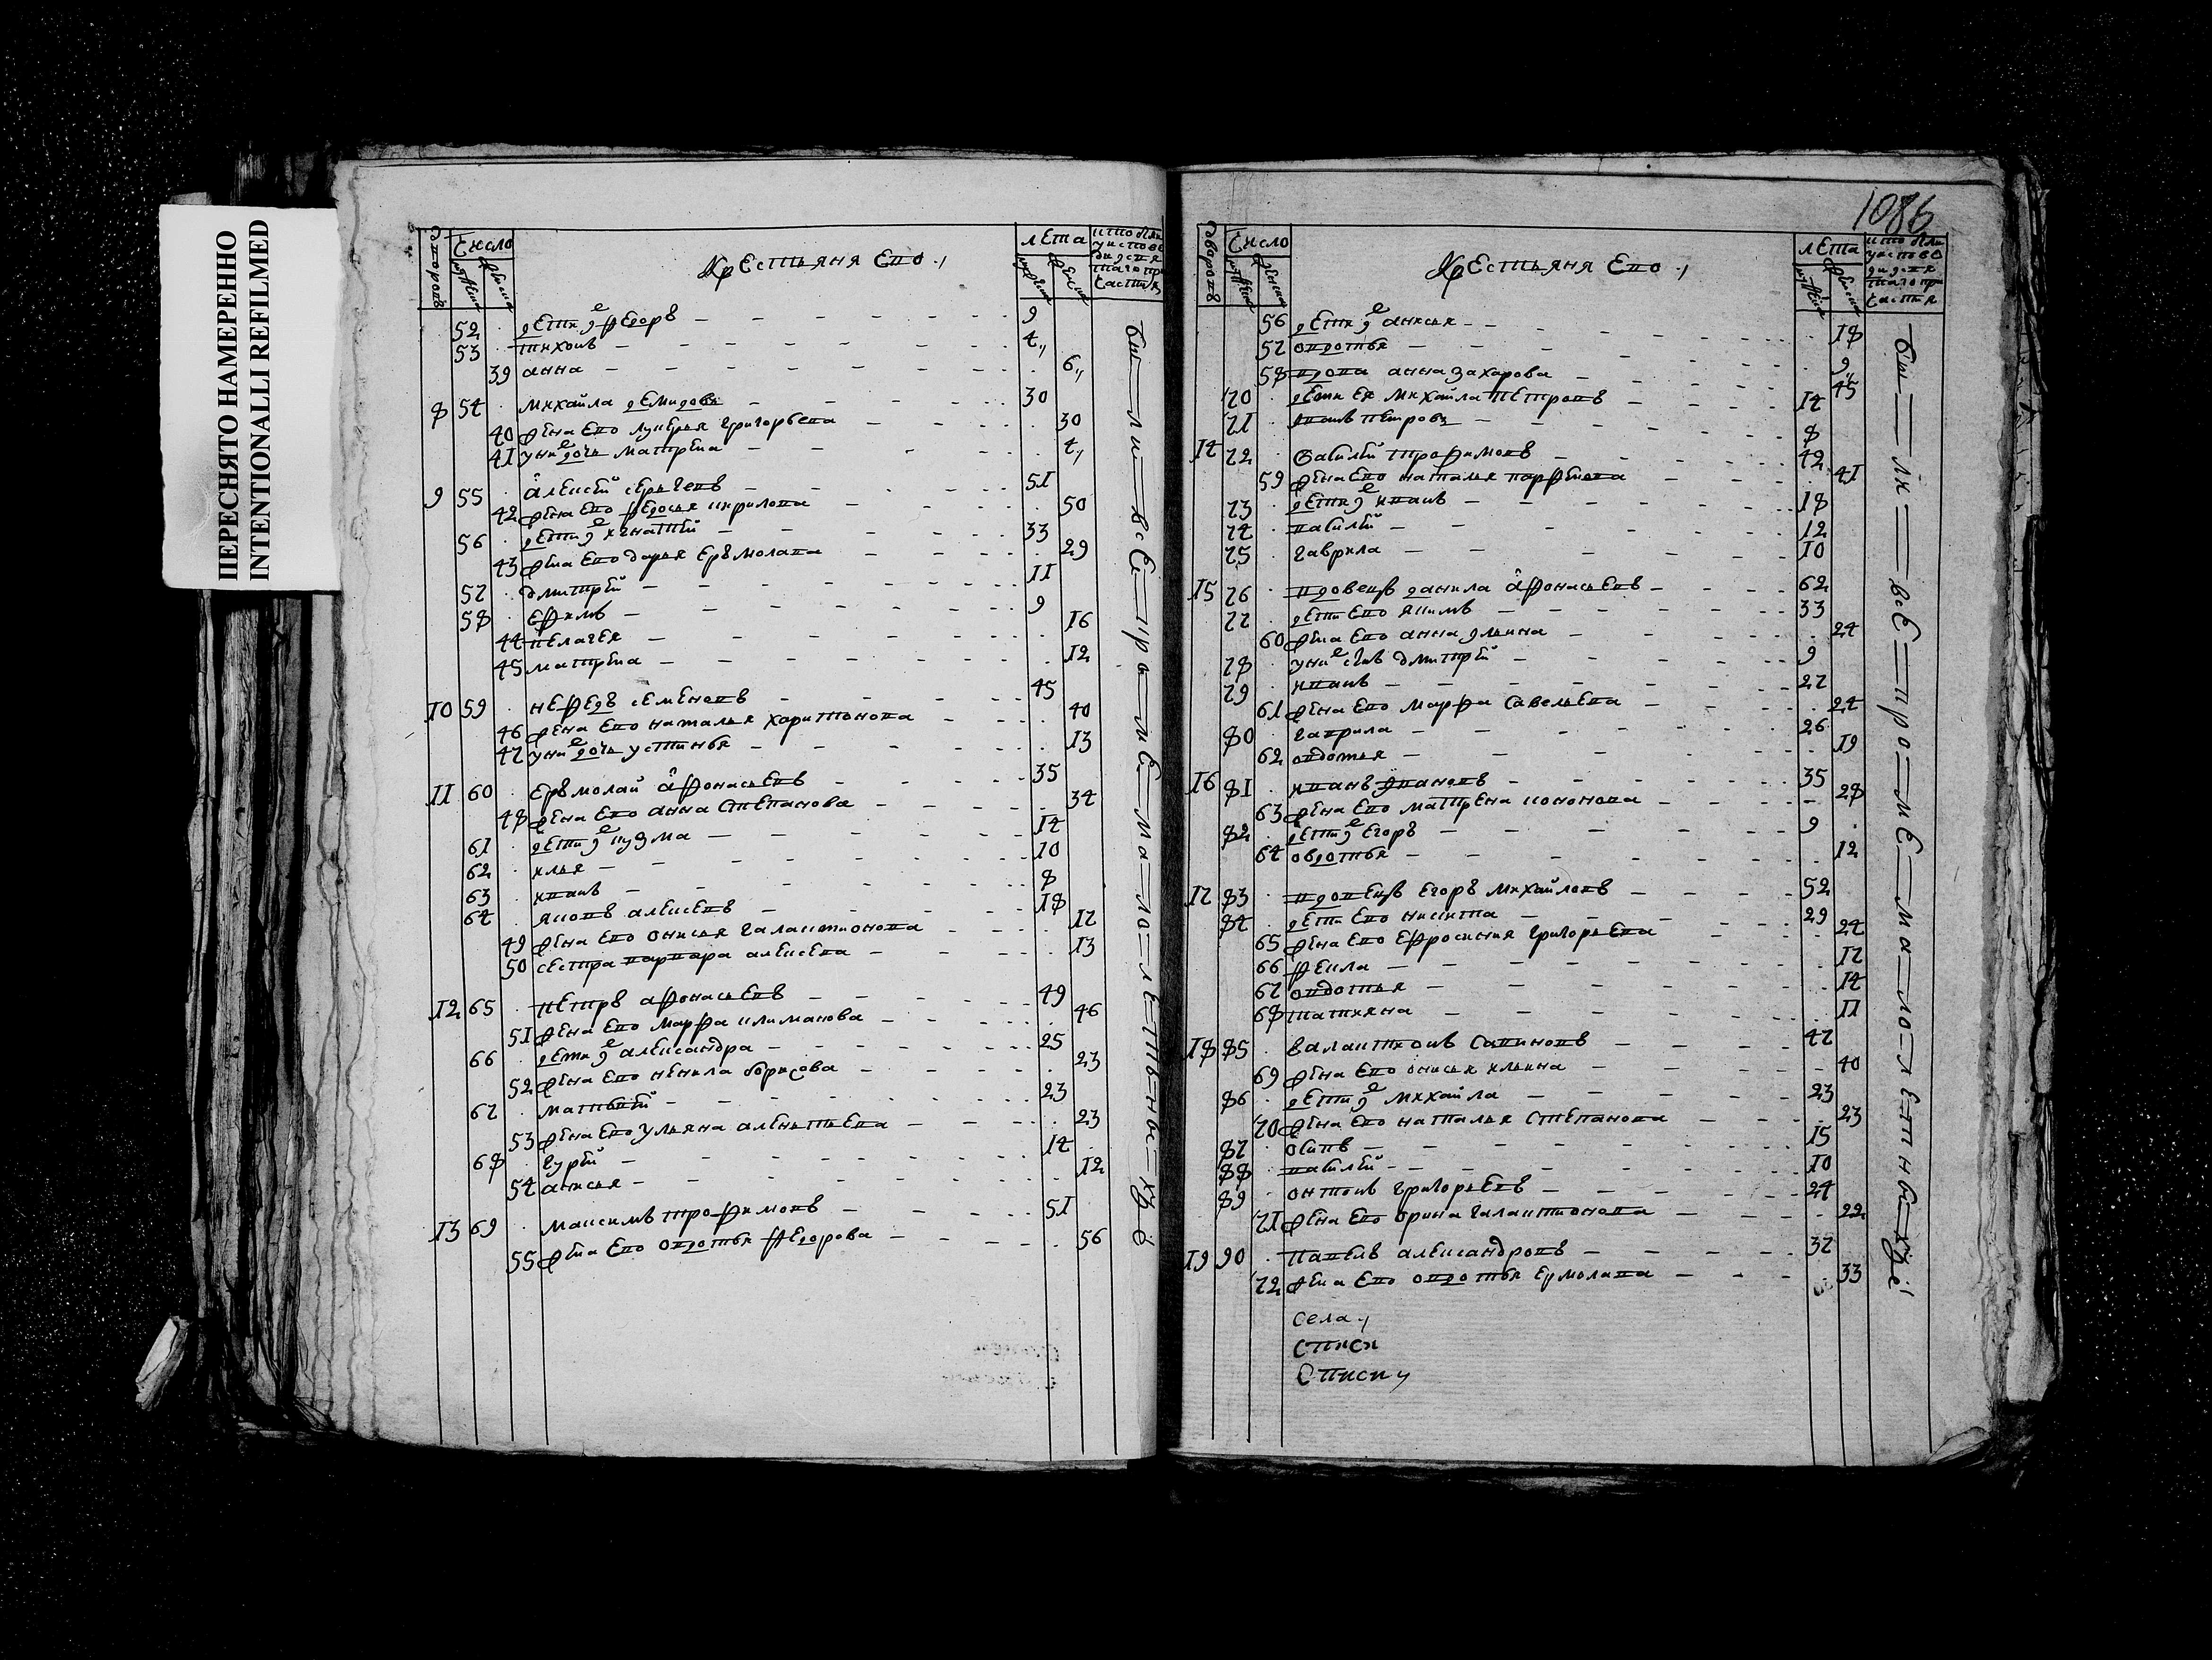 ПЕРЕСНЯТО НАМЕРЕННО
INTENTIONALLI REFILMED
дворовъ
Число
мужеска
женска
Крестьяня ево
лета
мужеска
женска
52 дети ѱ ѳедоръ 9
53 тихонъ 4
39 анна 6
8 54 михайла демидовъ 30
40 жена ево лукерья григорьева 30
41 у них дочь матрена 4
9 55 алексей сергеевъ 51
42 жена ево ѳедосья кирилова 50
56 дети игнатей 33
43 жена ево дарья ермолава 29
57 дмитрей 11
58 ефимъ 9
44 пелагея 16
45 матрена 12
10 59 нефедъ семеновъ 45
46 жена ево наталья харитонова 40
47 у них дочь устинья 13
11 60 ермолай афонасьевъ 35
48 жена ево анна степанова 34
61 дети кузма 14
62 илья 10
63 иванъ 8
64 яковъ алексевъ 18
49 жена ево онисья галактионова 17
50 сестра варвара алексева 13
12 65 петръ афонасьевъ 49
51 жена ево марфа климанова 46
66 дети александра 25
52 жена ево ненила борисова 23
67 матвей 23
53 жена ево ульяна аленьтьева 23
68 гурей 14
54 анисья 12
13 69 максимъ трофимовъ 51
55 жена ево овдотья ѳедорова 56
бы ли все кроме малолетные хъ
1086
дворовъ
Число
мужеска
женска
Крестьяня ево
лета
мужеска
женска
56 дети анисья 18
57 овдотья 9
58 вдова анна захарова 45
70 дети ея михайла петровъ 14
71 иванъ петровъ 8
14 72 савелей трофимовъ 42
59 жена ево наталья парфенова 41
73 дети иванъ 18
74 василей 12
75 гаврила 10
15 76 вдовецъ данила афонасьевъ 62
77 дети ево якимъ 33
60 жена ево анна ильина 24
78 у них сынъ дмитрей 9
79 иванъ 27
61 жена ево марфа савельева 24
80 гаврила 26
62 овдотья 19
16 81 иванъ ивановъ 35
63 жена ево матрена кононова 28
82 дети егоръ 9
64 овдотья 12
17 83 вдовецъ егоръ михайловъ 52
84 дети ево никита 29
65 жена ево ефросиния григорьева 24
66 ѳекла 17
67 овдотья 14
68 татияна 11
18 85 галактионъ савиновъ 47
69 жена ево онисья ильина 40
86 дети михайла 23
70 жена ево наталья степанова 23
87 осипъ 15
88 василей 10
89 онтонъ григорьевъ 24
71 жена ево орина галактионова 22
19 90 павелъ александровъ 37
72 жена ево овдотья ермолава 33
села
бы ли все кроме малолетныхъ